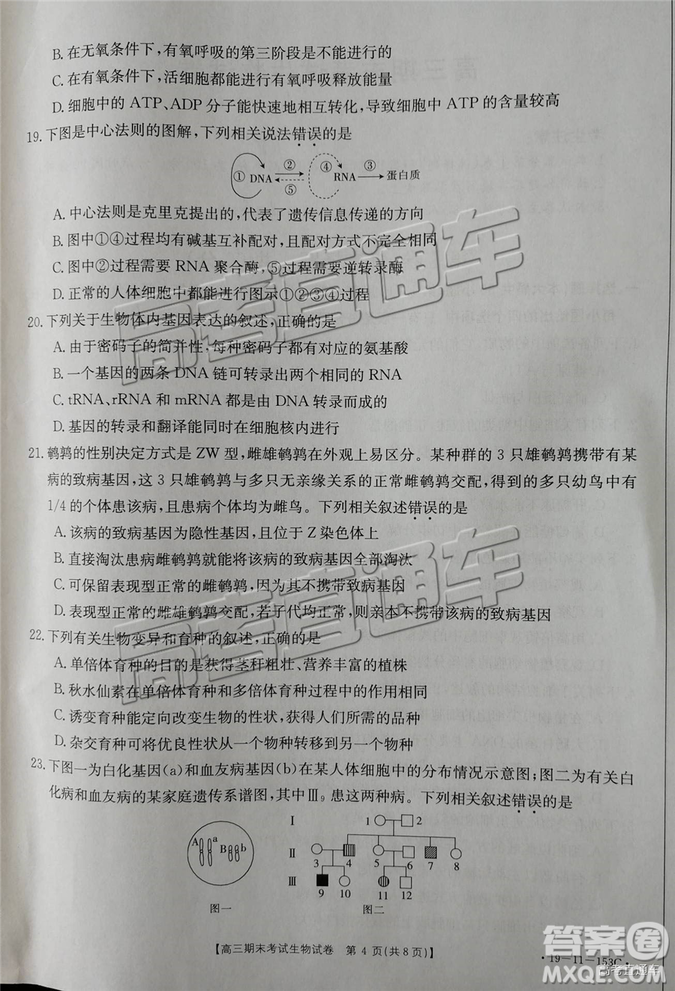 B. 在无氧条件下,有氧呼吸的第三阶段是不能进行的
C. 在有氧条件下,活细胞都能进行有氧呼吸释放能量
D. 细胞中的 ATP、ADP 分子能快速地相互转化,导致细胞中 ATP 的含量较高
19. 下图是中心法则的图解,下列相关说法错误的是
① DNA ② ⑤ RNA ④ ③ 蛋白质
A. 中心法则是克里克提出的,代表了遗传信息传递的方向
B. 图中①④过程均有碱基互补配对,且配对方式不完全相同
C. 图中②过程需要 RNA 聚合酶,⑤过程需要逆转录酶
D. 正常的人体细胞中都能进行图示①②③④过程
20. 下列关于生物体内基因表达的叙述,正确的是
A. 由于密码子的简并性,每种密码子都有对应的氨基酸
B. 一个基因的两条 DNA 链可转录出两个相同的 RNA
C. tRNA、rRNA 和 mRNA 都是 DNA 中遗传信息表达的结果
D. 基因的转录和翻译能同时在细胞核内进行
21. 鹌鹑的性别决定方式是 ZW 型,雌雄鹌鹑在外观上易区分。某种群的 3 只雄鹌鹑携带有某
病的致病基因,这 3 只雄鹌鹑与多只无亲缘关系的正常雌鹌鹑交配,得到的多只幼鸟中有
1/4 的个体患该病,且患病个体均为雌鸟。下列相关叙述错误的是
A. 该病的致病基因为隐性基因,且位于 Z 染色体上
B. 直接淘汰患病雌鹌鹑就能将该病的致病基因全部淘汰
C. 可保留表现型正常的雌鹌鹑,因为其不携带致病基因
D. 表现型正常的雌雄鹌鹑交配,若子代均正常,则亲本不携带该病的致病基因
22. 下列有关生物变异和育种的叙述,正确的是
A. 单倍体育种的目的是获得茎秆粗壮、营养丰富的植株
B. 秋水仙素在单倍体育种和多倍体育种过程中的作用相同
C. 诱变育种能定向改变生物的性状,获得人们所需的品种
D. 杂交育种可将优良性状从一个物种转移到另一个物种
23. 下图一为白化基因(a)和血友病基因(b)在某人体细胞中的分布情况示意图;图二为有关白
化病和血友病的某家庭遗传系谱图,其中Ⅲ9 患这两种病。下列相关叙述错误的是
Ⅰ 1 2
A a B b
Ⅱ 3 4 5 6 7 8
Ⅲ 9 10 11 12
图一 图二
【高三期末考试生物试卷 第 4 页(共 8 页)】
·19-11-153C·
高考直通车
高考直通车
高考直通车
MXQE答案圈
MXQE.COM